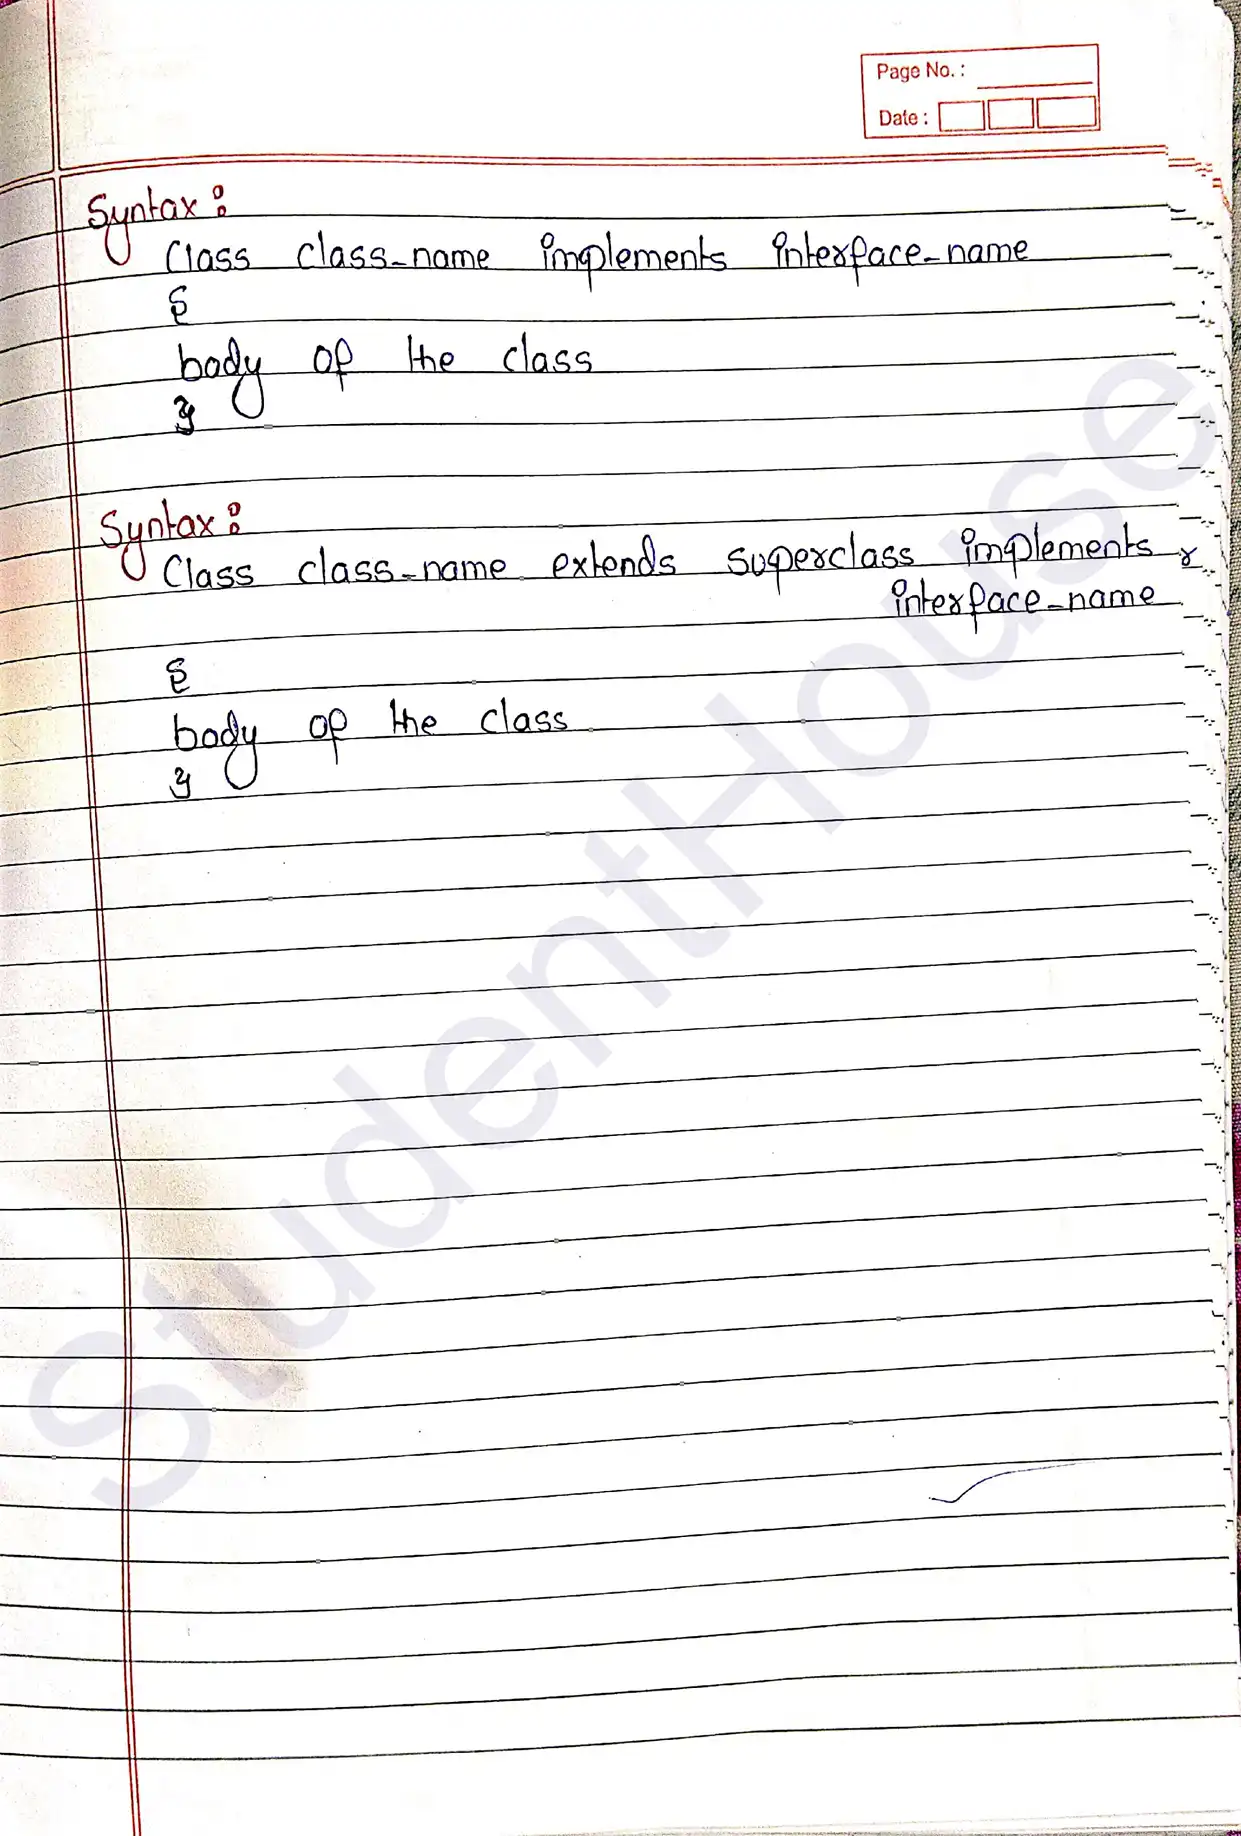 Page No. :
Date :
Syntax :
Class class-name implements interface-name
{
body of the class
}
Syntax :
Class class-name extends superclass implements
interface-name
{
body of the class
}
StudentHouse